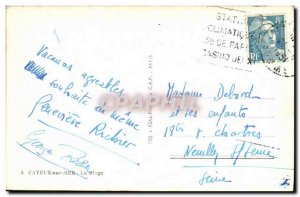 STAT
CLIMATI
3H DE PAR
CASINO JE
Vacances agréables
souhaite de même
Geneviève Richier
Madame Debord
et ses enfants
18bis r. Chartres
Neuilly s/Seine
Seine
CAYEUX-sur-MER - La Plage